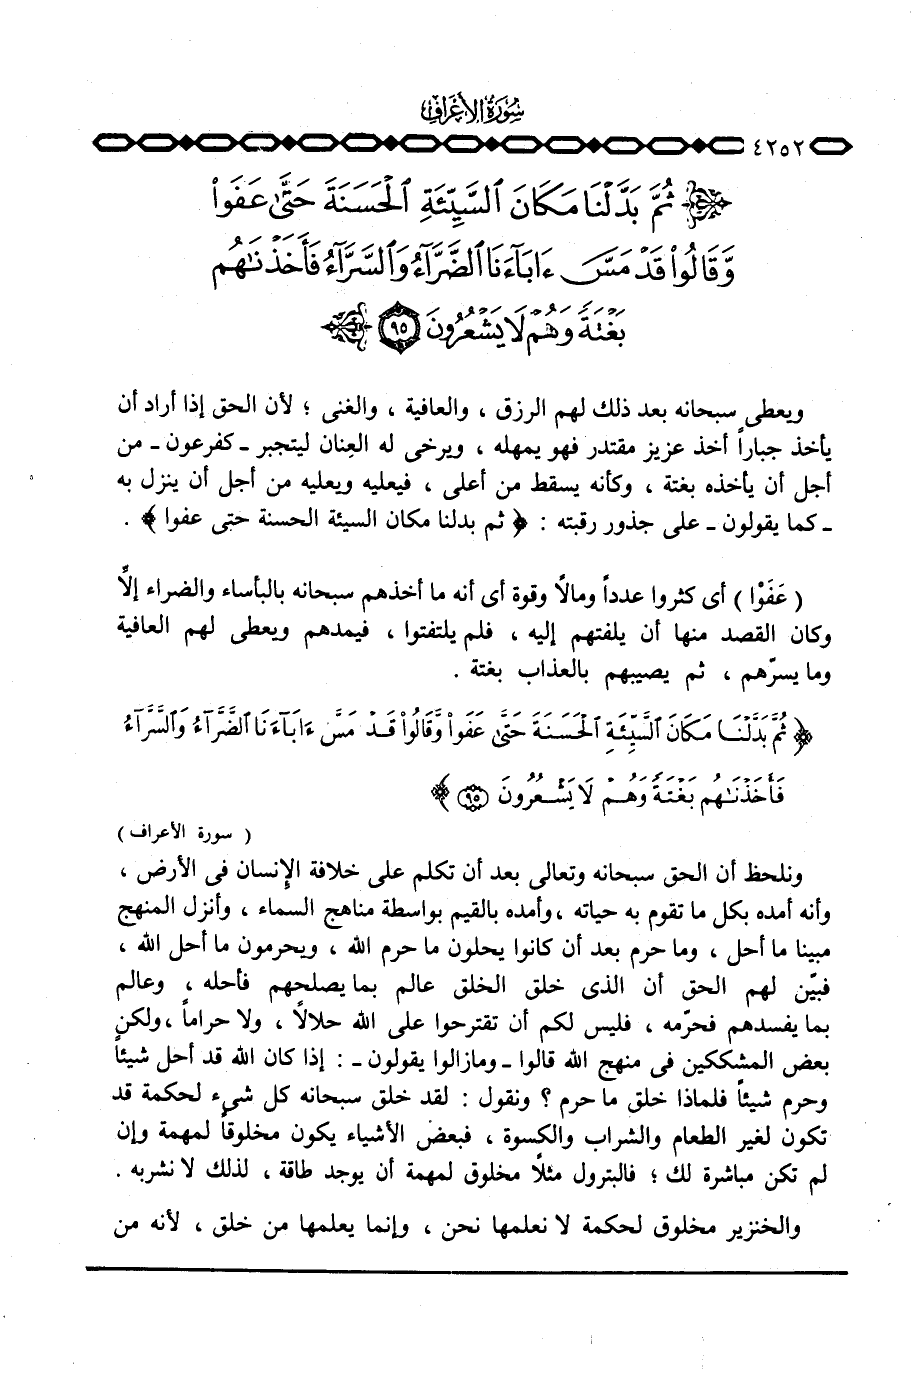 سُورَةُ الأَعْرَافِ
٤٢٥٢
﴿ ثُمَّ بَدَّلْنَا مَكَانَ ٱلسَّيِّئَةِ ٱلْحَسَنَةَ حَتَّىٰ عَفَوا۟
وَّقَالُوا۟ قَدْ مَسَّ ءَابَآءَنَا ٱلضَّرَّآءُ وَٱلسَّرَّآءُ فَأَخَذْنَـٰهُم
بَغْتَةً وَهُمْ لَا يَشْعُرُونَ ٩٥ ﴾
ويعطى سبحانه بعد ذلك لهم الرزق ، والعافية ، والغنى ؛ لأن الحق إذا أراد أن
يأخذ جباراً أخذ عزيز مقتدر فهو يمهله ، ويرخى له العِنان ليتجبر ـ كفرعون ـ من
أجل أن يأخذه بغتة ، وكأنه يسقط من أعلى ، فيعليه ويعليه من أجل أن ينزل به
ـ كما يقولون ـ على جذور رقبته : ﴿ ثم بدلنا مكان السيئة الحسنة حتى عفوا ﴾ .
( عَفَوْا ) أى كثروا عدداً ومالاً وقوة أى أنه ما أخذهم سبحانه بالبأساء والضراء إلاَّ
وكان القصد منها أن يلفتهم إليه ، فلم يلتفتوا ، فيمدهم ويعطى لهم العافية
وما يسرّهم ، ثم يصيبهم بالعذاب بغتة .
﴿ ثُمَّ بَدَّلْنَا مَكَانَ ٱلسَّيِّئَةِ ٱلْحَسَنَةَ حَتَّىٰ عَفَوا۟ وَّقَالُوا۟ قَدْ مَسَّ ءَابَآءَنَا ٱلضَّرَّآءُ وَٱلسَّرَّآءُ
فَأَخَذْنَـٰهُم بَغْتَةً وَهُمْ لَا يَشْعُرُونَ ٩٥ ﴾
( سورة الأعراف )
ونلحظ أن الحق سبحانه وتعالى بعد أن تكلم على خلافة الإِنسان فى الأرض ،
وأنه أمده بكل ما تقوم به حياته ، وأمده بالقيم بواسطة مناهج السماء ، وأنزل المنهج
مبينا ما أحل ، وما حرم بعد أن كانوا يحلون ما حرم الله ، ويحرمون ما أحل الله ،
فبيّن لهم الحق أن الذى خلق الخلق عالم بما يصلحهم فأحله ، وعالم
بما يفسدهم فحرّمه ، فليس لكم أن تقترحوا على الله حلالاً ، ولا حراماً ، ولكن
بعض المشككين فى منهج الله قالوا ـ ومازالوا يقولون ـ : إذا كان الله قد أحل شيئاً
وحرم شيئاً فلماذا خلق ما حرم ؟ ونقول : لقد خلق سبحانه كل شىء لحكمة قد
تكون لغير الطعام والشراب والكسوة ، فبعض الأشياء يكون مخلوقاً لمهمة وإن
لم تكن مباشرة لك ؛ فالبترول مثلاً مخلوق لمهمة أن يوجد طاقة ، لذلك لا نشربه .
والخنزير مخلوق لحكمة لا نعلمها نحن ، وإنما يعلمها من خلق ، لأنه من